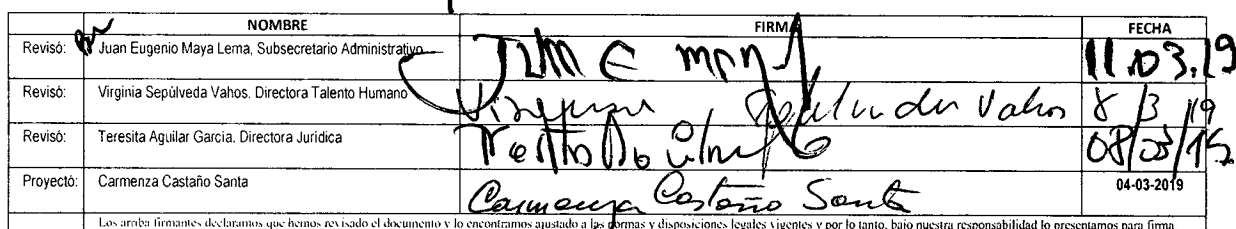 NOMBRE FIRMA FECHA
Revisó: Juan Eugenio Maya Lema, Subsecretario Administrativo 11.03.19
Revisó: Virginia Sepúlveda Vahos. Directora Talento Humano Virginia Sepulveda Vahos 8/3/19
Revisó: Teresita Aguilar García. Directora Jurídica 08/03/19
Proyectó: Carmenza Castaño Santa Carmenza Castaño Santa 04-03-2019
Los arriba firmantes declaramos que hemos revisado el documento y lo encontramos ajustado a las normas y disposiciones legales vigentes y por lo tanto, bajo nuestra responsabilidad lo presentamos para firma